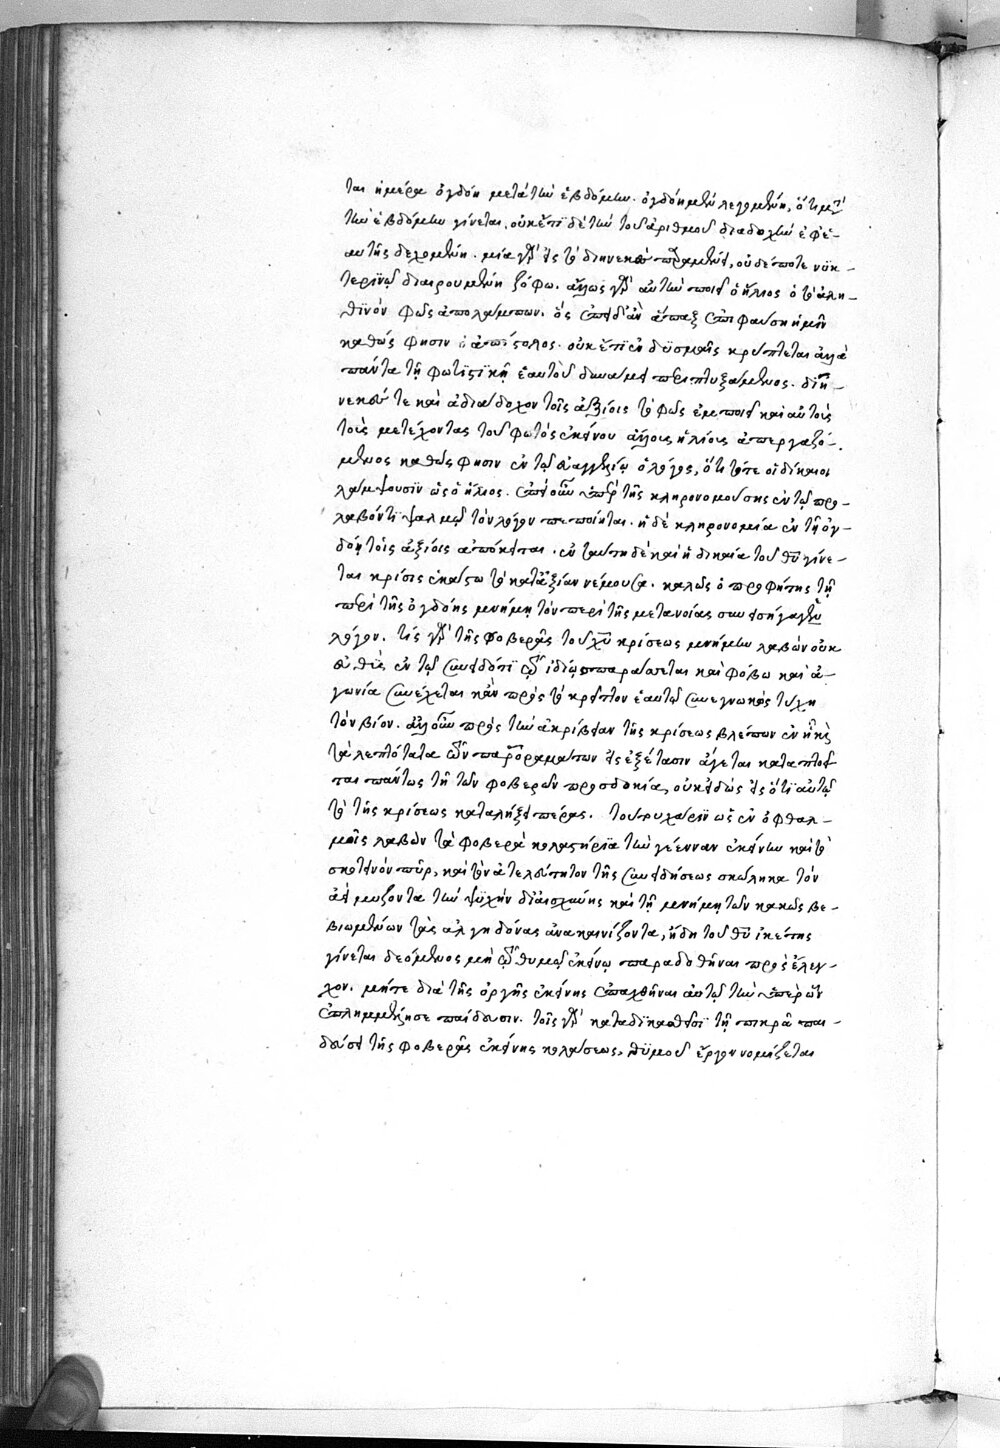 ται ἡμέρα ὀγδόη μετὰ τὴν ἑβδόμην. ὀγδόη μὲν λεγομένη, ὅτι μετὰ
τὴν ἑβδόμην γίνεται, οὐκέτι δὲ τὴν τοῦ ἀριθμοῦ διαδοχὴν ἐφ' ἑ-
αυτῆς δεχομένη. μία γὰρ εἰς τὸ διηνεκὲς παραμένει, οὐδέποτε νυκ-
τερινῷ διαιρουμένη ζόφῳ. ἄλλως γὰρ αὐτὴν ποιεῖ ὁ ἥλιος ὁ τὸ ἀλη-
θινὸν φῶς ἀπολάμπων. ὃς ἐπειδὰν ἅπαξ ἐπιφαύσῃ ἡμῖν
καθώς φησιν ὁ ἀπόστολος. οὐκέτι ἐν δυσμαῖς κρύπτεται ἀλλὰ
πάντα τῇ φωτιστικῇ ἑαυτοῦ δυνάμει περιπτυξάμενος. διη-
νεκές τε καὶ ἀδιάδοχον τοῖς ἀξίοις τὸ φῶς ἐμποιεῖ καὶ αὐτοὺς
τοὺς μετέχοντας τοῦ φωτὸς ἐκείνου ἄλλους ἡλίους ἀπεργαζό-
μενος καθώς φησιν ἐν τῷ εὐαγγελίῳ ὁ λόγος, ὅτι τότε οἱ δίκαιοι
λάμψουσιν ὡς ὁ ἥλιος. ἐπεὶ οὖν ὑπὲρ τῆς κληρονομούσης ἐν τῷ προ-
λαβόντι ψαλμῷ τὸν λόγον πεποίηται. ἡ δὲ κληρονομία ἐν τῇ ὀγ-
δόῃ τοῖς ἀξίοις ἀπόκειται. ἐν ταύτῃ δὲ καὶ ἡ δικαία τοῦ θυ γίνε-
ται κρίσις ἑκάστω τὸ κατ' ἀξίαν νέμουσα. καλῶς ὁ προφήτης τῇ
περὶ τῆς ὀγδόης μνήμῃ τὸν περὶ τῆς μετανοίας συνεισήγαγεν
λόγον. τίς γὰρ τῆς φοβερᾶς τοῦ χυ κρίσεως μνήμην λαβὼν οὐκ
εὐθὺς ἐν τῷ συνειδότι τῷ ἰδίῳ σπαράσσεται καὶ φόβω καὶ ἀ-
γωνία συνέχεται κἂν πρὸς τὸ κρεῖττον ἑαυτῷ συνεγνωκὼς τύχη
τὸν βίον. ἀλλ' οὖν πρὸς τὴν ἀκρίβειαν τῆς κρίσεως βλέπων ἐν ᾗ καὶ
τὰ λεπτότατα τῶν παροραμάτων εἰς ἐξέτασιν ἄγεται καταπτοεῖ-
ται πάντως τῇ τῶν φοβερῶν προσδοκία, οὐκ εἰδὼς εἰς ὅτι αὐτῷ
τὸ τῆς κρίσεως καταλήξει πέρας. τούτου χάριν ὡς ἐν ὀφθαλ-
μοῖς λαβὼν τὰ φοβερὰ κολαστήρια τὴν γέενναν ἐκείνην καὶ τὸ
σκοτεινὸν πῦρ, καὶ τὸν ἀτελεύτητον τῆς συνειδήσεως σκώληκα τὸν
ἀεὶ μύζοντα τὴν ψυχὴν δι' αἰσχύνης καὶ τῇ μνήμῃ τῶν κακῶς βε-
βιωμένων τὰς ἀλγηδόνας ἀνακαινίζοντα, ἤδη τοῦ θυ ἱκέτης
γίνεται δεόμενος μὴ τῷ θυμῷ ἐκείνῳ παραδοθῆναι πρὸς ἔλεγ-
χον. μήτε διὰ τῆς ὀργῆς ἐκείνης ἐπαχθῆναι αὐτῷ τὴν ὑπὲρ ὧν
ἐπλημμέλησε παίδευσιν. τοῖς γὰρ καταδικασθεῖσι τῇ πικρᾶ παι-
δεύσει τῆς φοβερᾶς ἐκείνης κολάσεως, θυμοῦ ἔργον νομίζεται